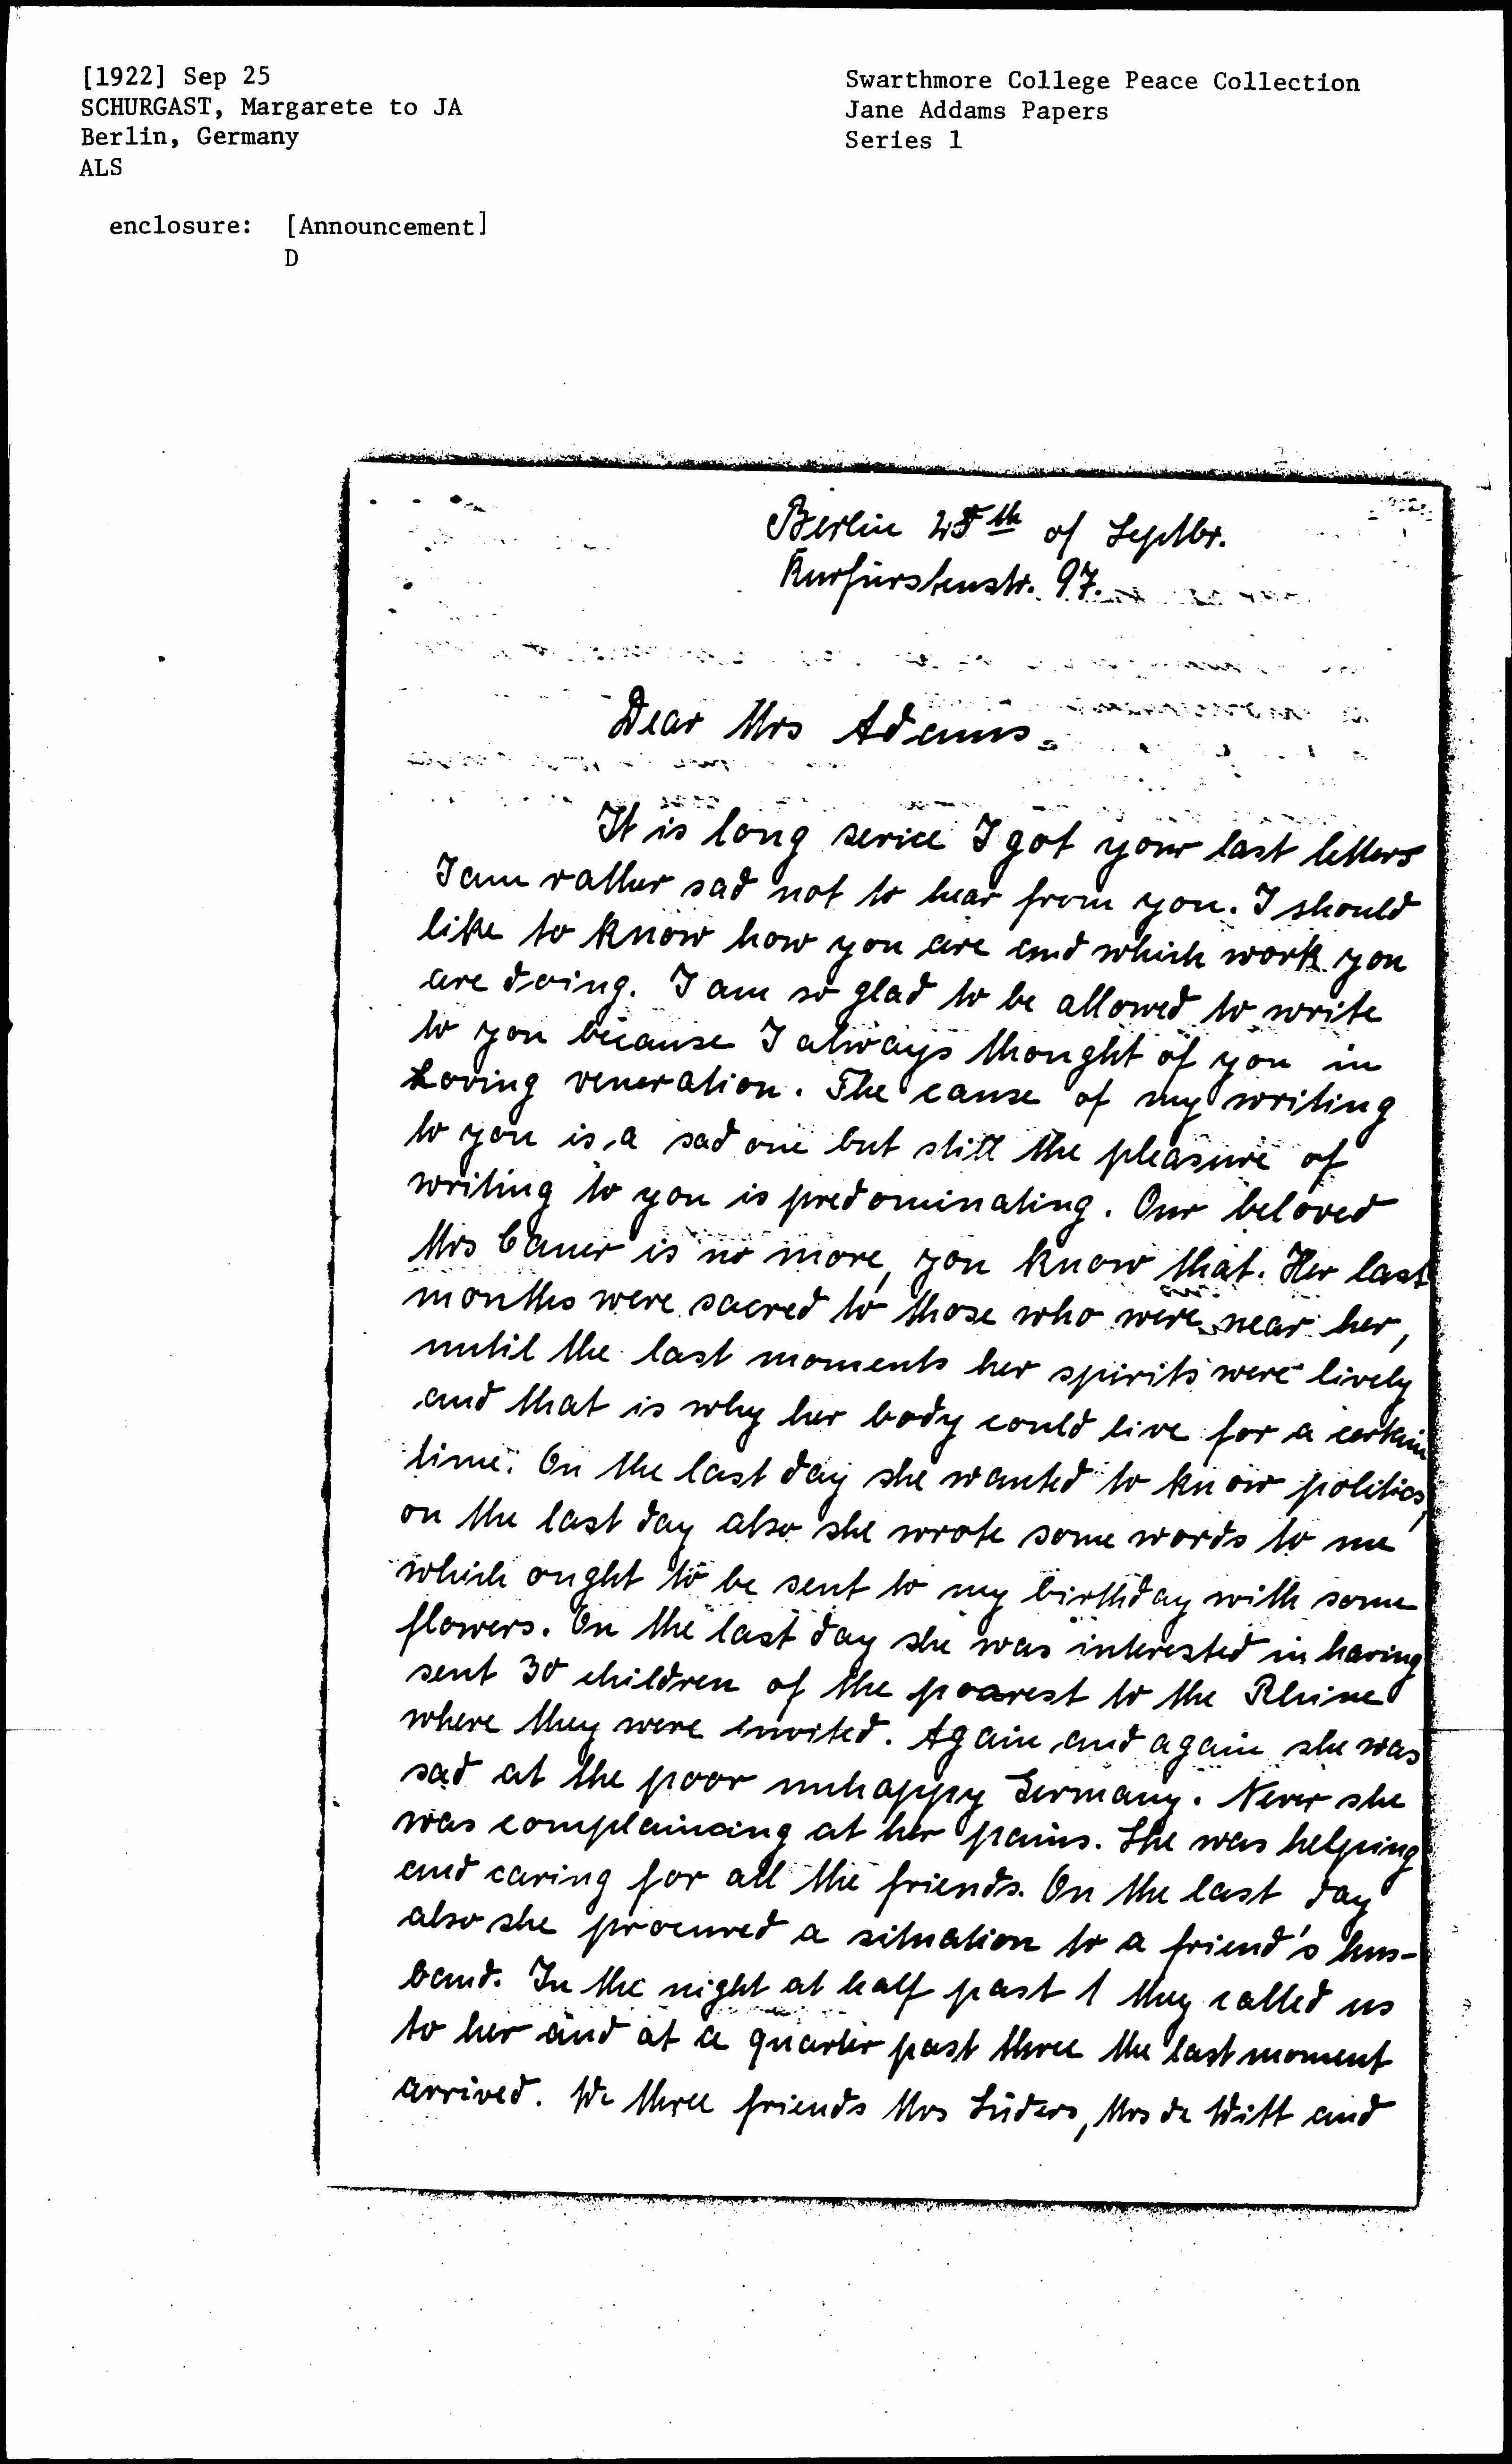 [1922] Sep 25
SCHURGAST, Margarete to JA
Berlin, Germany
ALS
enclosure: [Announcement]
D
Swarthmore College Peace Collection
Jane Addams Papers
Series 1
Berlin 25th of Septbr.
Kurfürstenstr. 97.
Dear Mrs Adams.
It is long serice I got your last letters
I am rather sad not to hear from you. I should
like to know how you are and which work you
are doing. I am so glad to be allowed to write
to you because I always thought of you in
Loving veneration. The cause of my writing
to you is a sad one but still the pleasure of
writing to you is predominating. Our beloved
Mrs Cauer is no more, you know that. Her last
months were sacred to those who were near her,
until the last moments her spirits were lively
and that is why her body could live for a certain
time. On the last day she wanted to know politics,
on the last day also she wrote some words to me
which ought to be sent to my birthday with some
flowers. On the last day she was interested in having
sent 30 children of the poorest to the Rhine
where they were invited. Again and again she was
sad at the poor unhappy Germany. Never she
was complaincing at her pains. She was helping
and caring for all the friends. On the last day
also she procured a situation to a friend's hus-
band. In the night at half past 1 they called us
to her and at a quarter past three the last moment
arrived. We three friends Mrs Lüders, Mrs de Witt and